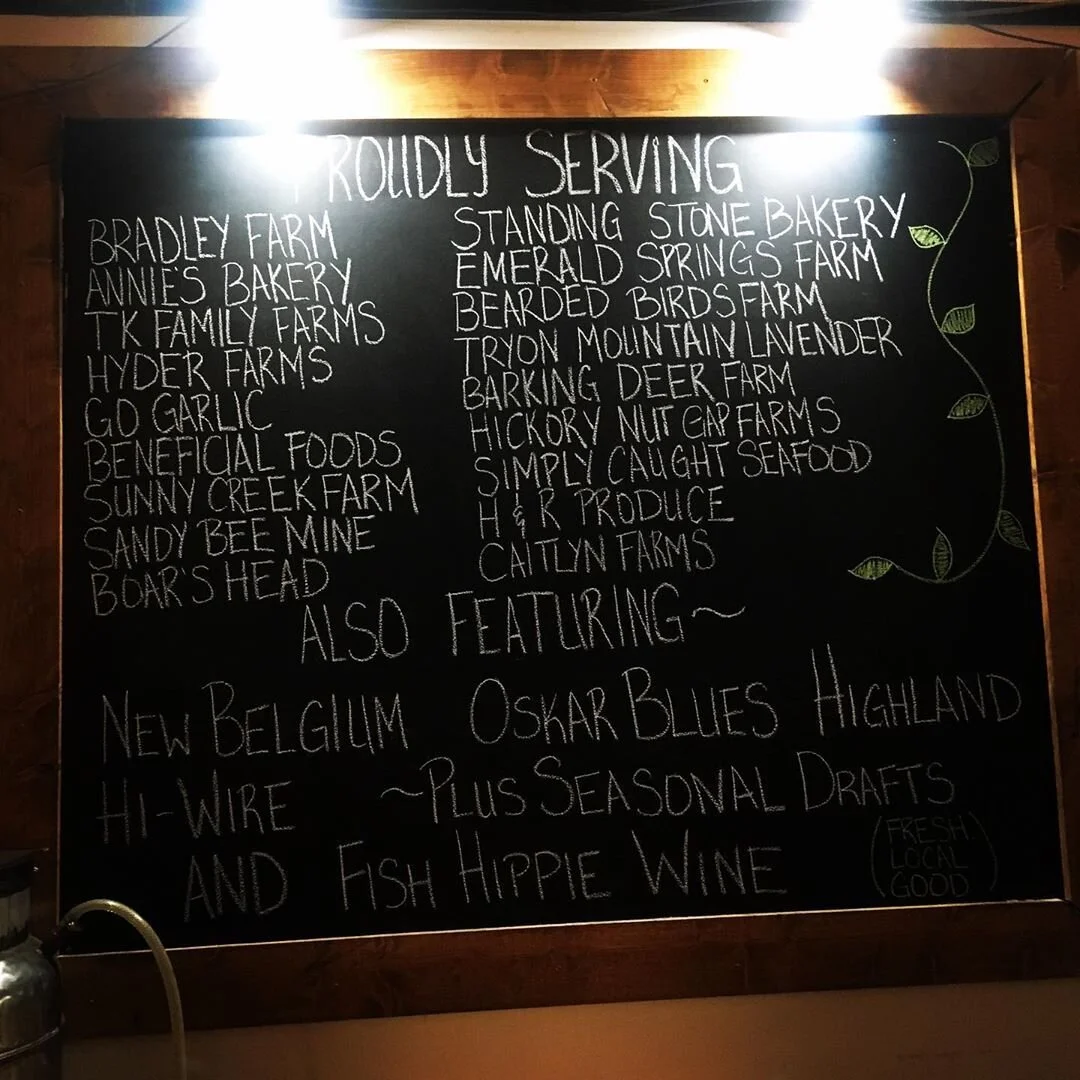 PROUDLY SERVING
BRADLEY FARM
ANNIE'S BAKERY
TK FAMILY FARMS
HYDER FARMS
GO GARLIC
BENEFICIAL FOODS
SUNNY CREEK FARM
SANDY BEE MINE
BOAR'S HEAD
STANDING STONE BAKERY
EMERALD SPRINGS FARM
BEARDED BIRDS FARM
TRYON MOUNTAIN LAVENDER
BARKING DEER FARM
HICKORY NUT GAP FARMS
SIMPLY CAUGHT SEAFOOD
H & R PRODUCE
CAITLYN FARMS
ALSO FEATURING~
NEW BELGIUM OSKAR BLUES HIGHLAND
HI-WIRE ~PLUS SEASONAL DRAFTS
AND FISH HIPPIE WINE
(FRESH
LOCAL
GOOD)